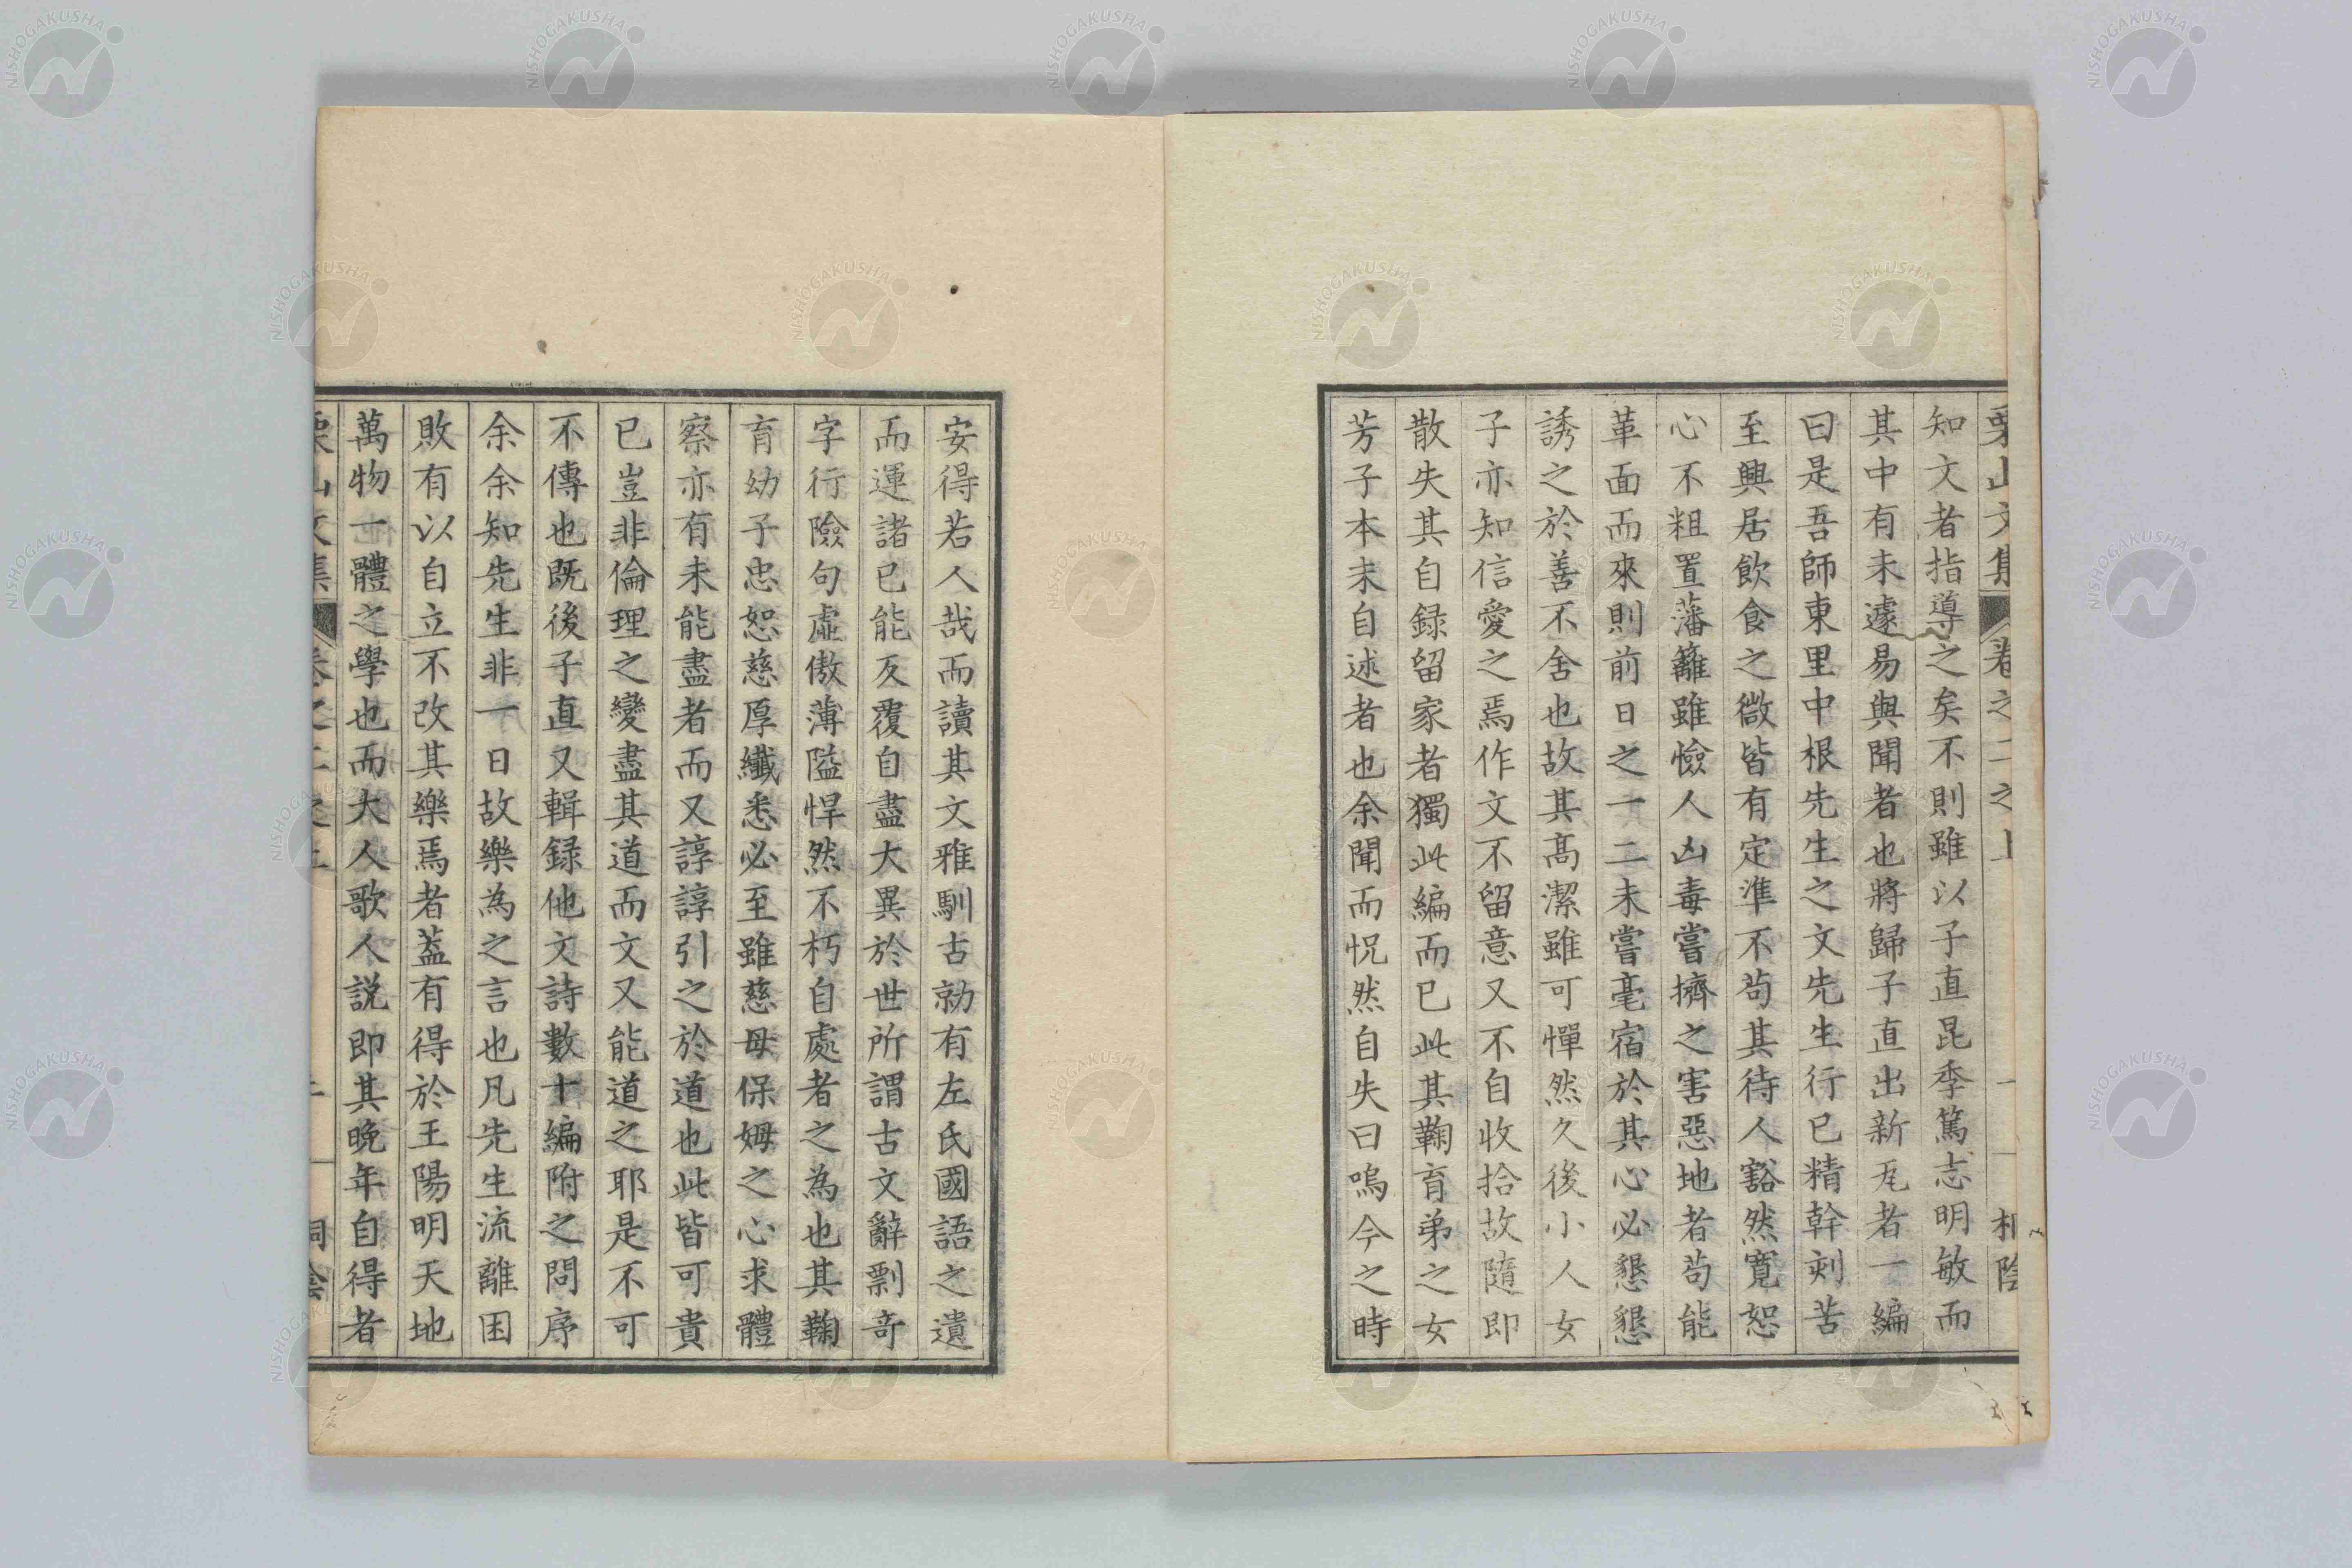 栗山文集 卷之二之上 桐陰
知文者指導之矣不則雖以子直昆季篤志明敏而
其中有未遽易與聞者也將歸子直出新刓者一編
曰是吾師東里中根先生之文先生行已精幹刻苦
至興居飲食之微皆有定準不苟其待人豁然寬恕
心不粗置藩籬雖憸人凶毒嘗擠之害惡地者苟能
革面而來則前日之一二未嘗毫宿於其心必懇懇
誘之於善不舍也故其高潔雖可憚然久後小人女
子亦知信愛之焉作文不留意又不自收拾故隨即
散失其自録留家者獨此編而已此其鞠育弟之女
芳子本末自述者也余聞而怳然自失曰嗚今之時
安得若人哉而讀其文雅馴古勍有左氏國語之遺
而運諸已能反覆自盡大異於世所謂古文辭剽奇
字行險句虛傲薄隘悍然不朽自處者之為也其鞠
育幼子忠恕慈厚纖悉必至雖慈母保姆之心求體
察亦有未能盡者而又諄諄引之於道也此皆可貴
已豈非倫理之變盡其道而文又能道之耶是不可
不傳也既後子直又輯録他文詩數十編附之問序
余余知先生非一日故樂為之言也凡先生流離困
敗有以自立不改其樂焉者葢有得於王陽明天地
萬物一體之學也而大人歌人説即其晚年自得者
栗山文集 卷之二之上 桐陰
NISHOGAKUSHA